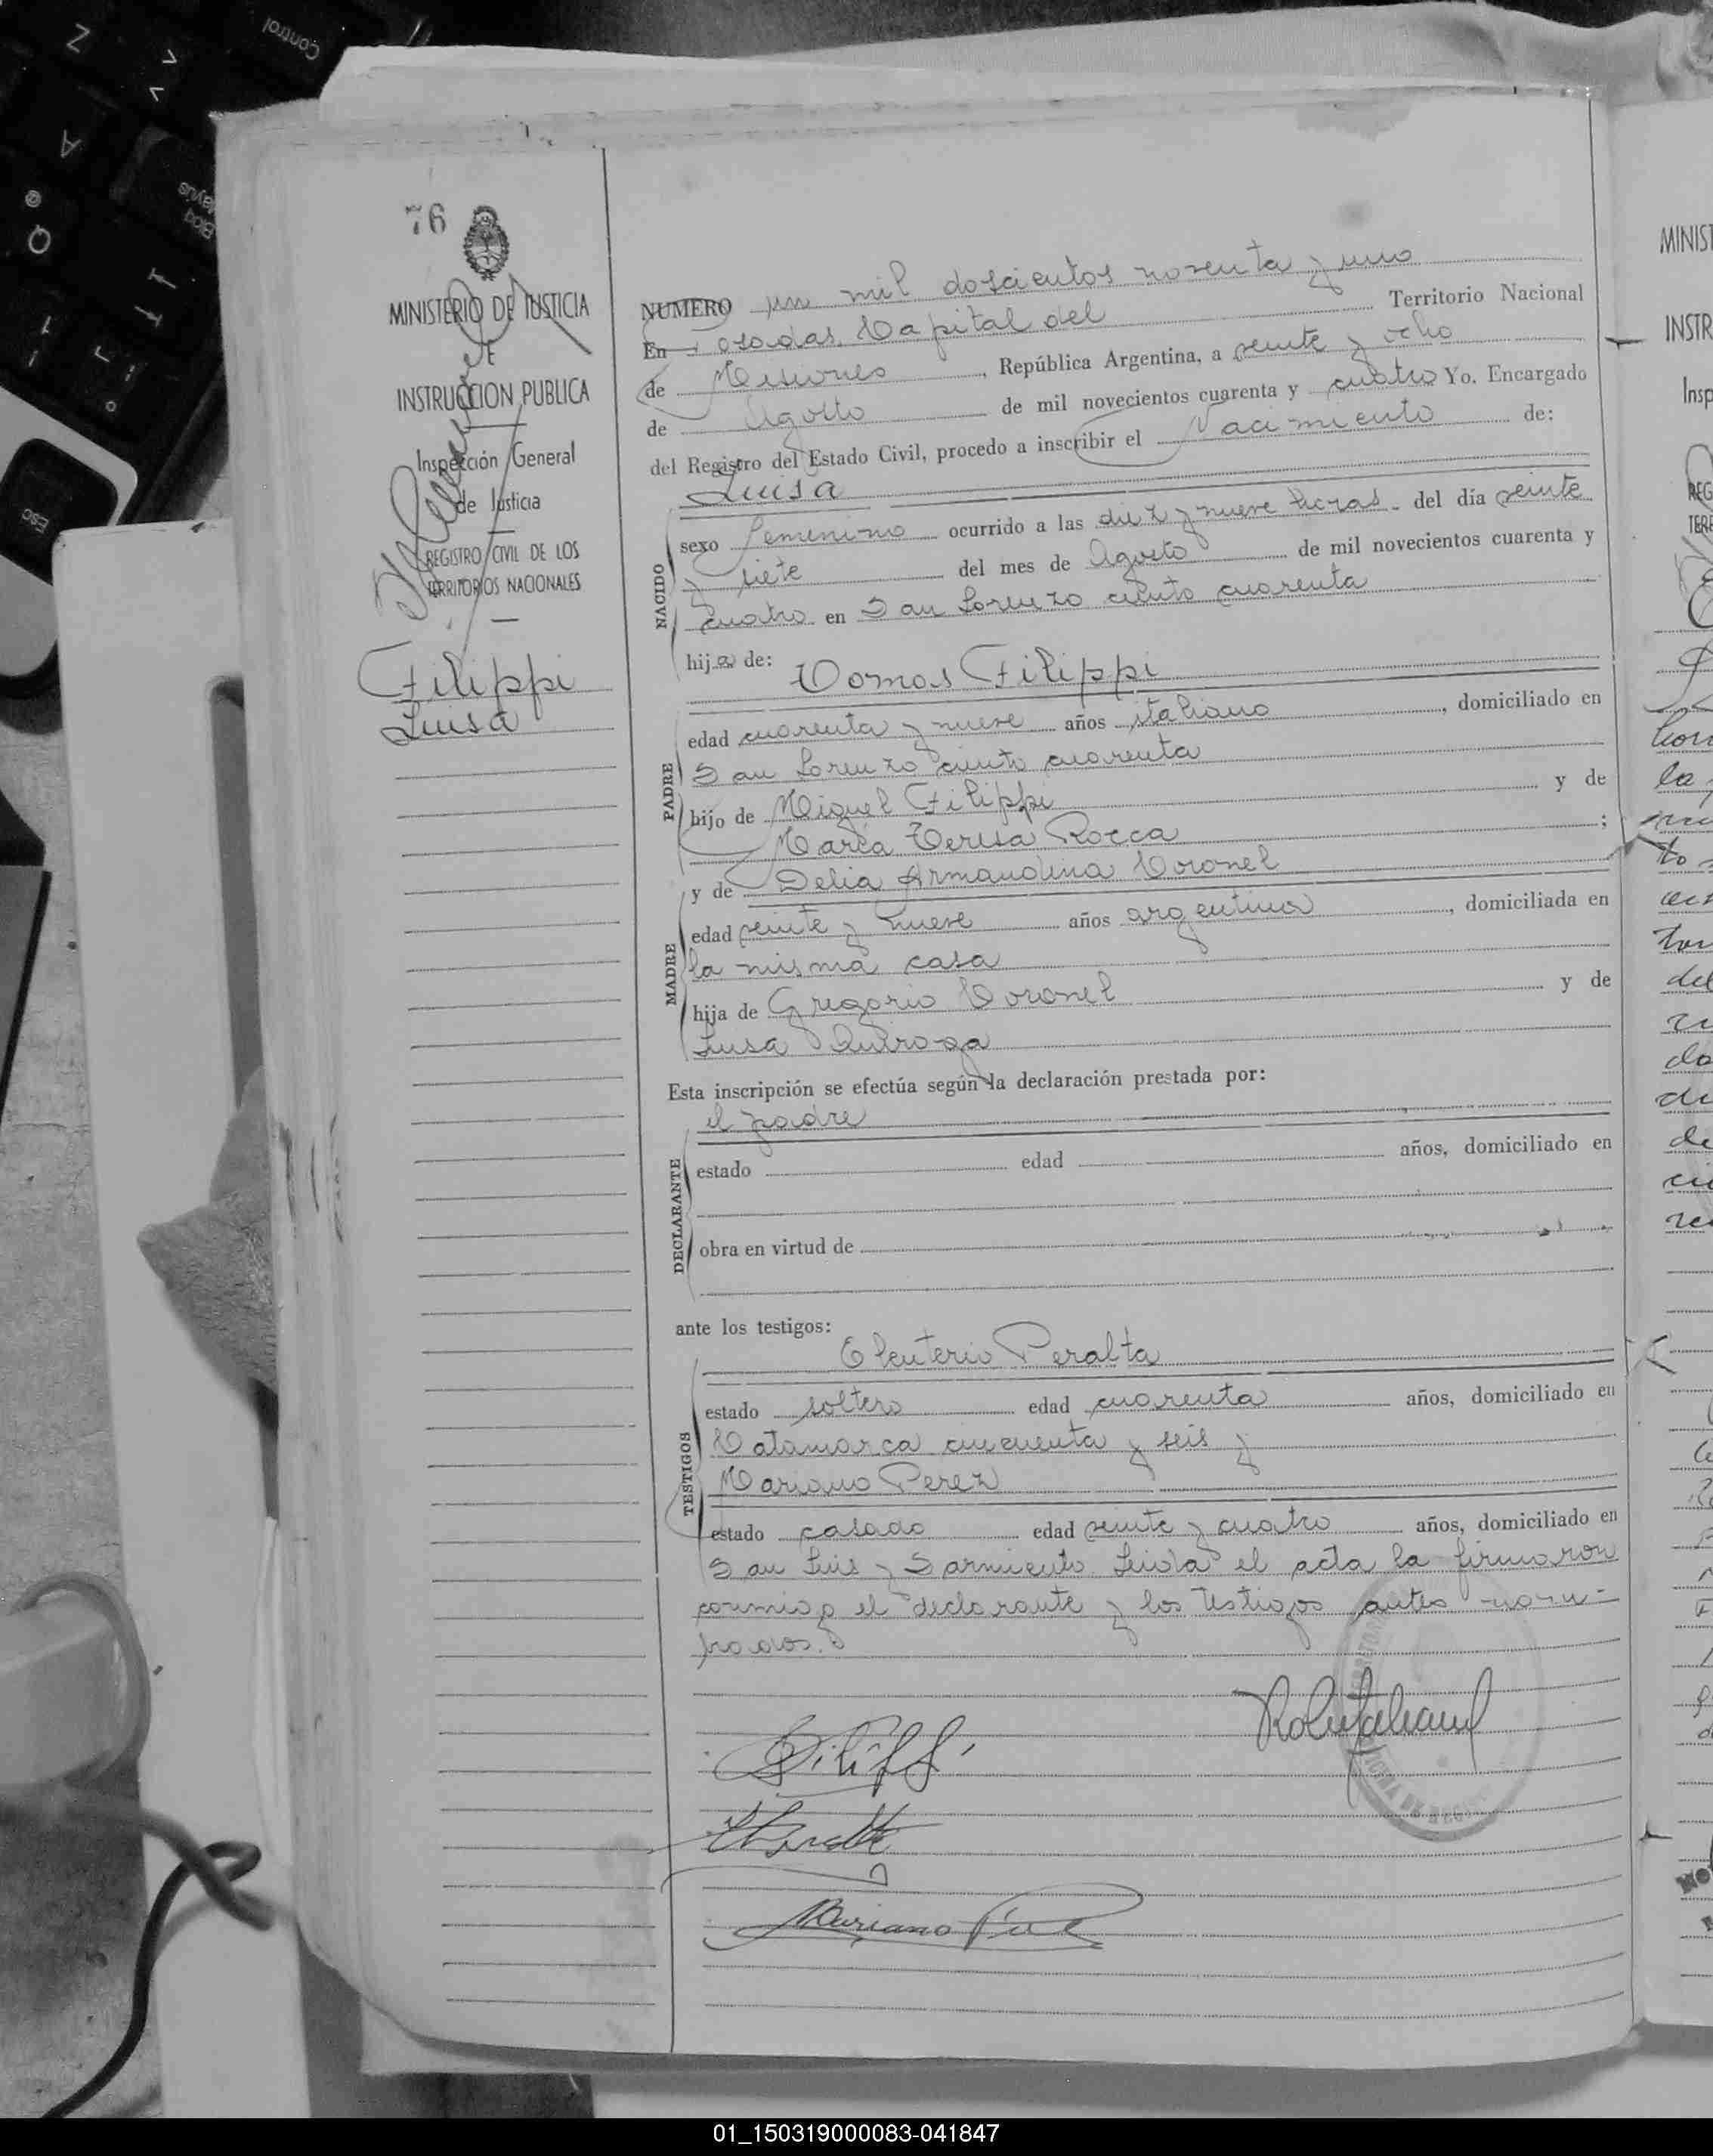 76
MINISTERIO DE JUSTICIA
E
INSTRUCCION PUBLICA
Inspección General
de Justicia
REGISTRO CIVIL DE LOS
TERRITORIOS NACIONALES
Filippi
Luisa
NUMERO un mil doscientos noventa y uno
En Posadas, Capital del Territorio Nacional
de Misiones, República Argentina, a veinte y ocho
de Agosto de mil novecientos cuarenta y cuatro Yo. Encargado
del Registro del Estado Civil, procedo a inscribir el Nacimiento de:
Luisa
NACIDO
sexo femenino ocurrido a las diez y nueve horas del día veinte
y siete del mes de Agosto de mil novecientos cuarenta y
cuatro en San Lorenzo ciento cuarenta
hija de:
Comas Filippi
PADRE
edad cuarenta y nueve años italiano, domiciliado en
San Lorenzo ciento cuarenta
hijo de Miguel Filippi y de
María Teresa Rocca;
MADRE
y de Delia Armandina Coronel
edad veinte y nueve años argentina, domiciliada en
la misma casa
hija de Gregorio Coronel y de
Luisa Quiroga
Esta inscripción se efectúa según la declaración prestada por:
el padre
DECLARANTE
estado edad años, domiciliado en
obra en virtud de
ante los testigos:
Eleuterio Peralta
TESTIGOS
estado soltero edad cuarenta años, domiciliado en
Catamarca cincuenta y seis y
Mariano Perez
estado casado edad veinte y cuatro años, domiciliado en
San Luis y Sarmiento Leida el acta la firmaron
conmigo el declarante y los testigos antes nom-
brados.
Mariano
01_150319000083-041847